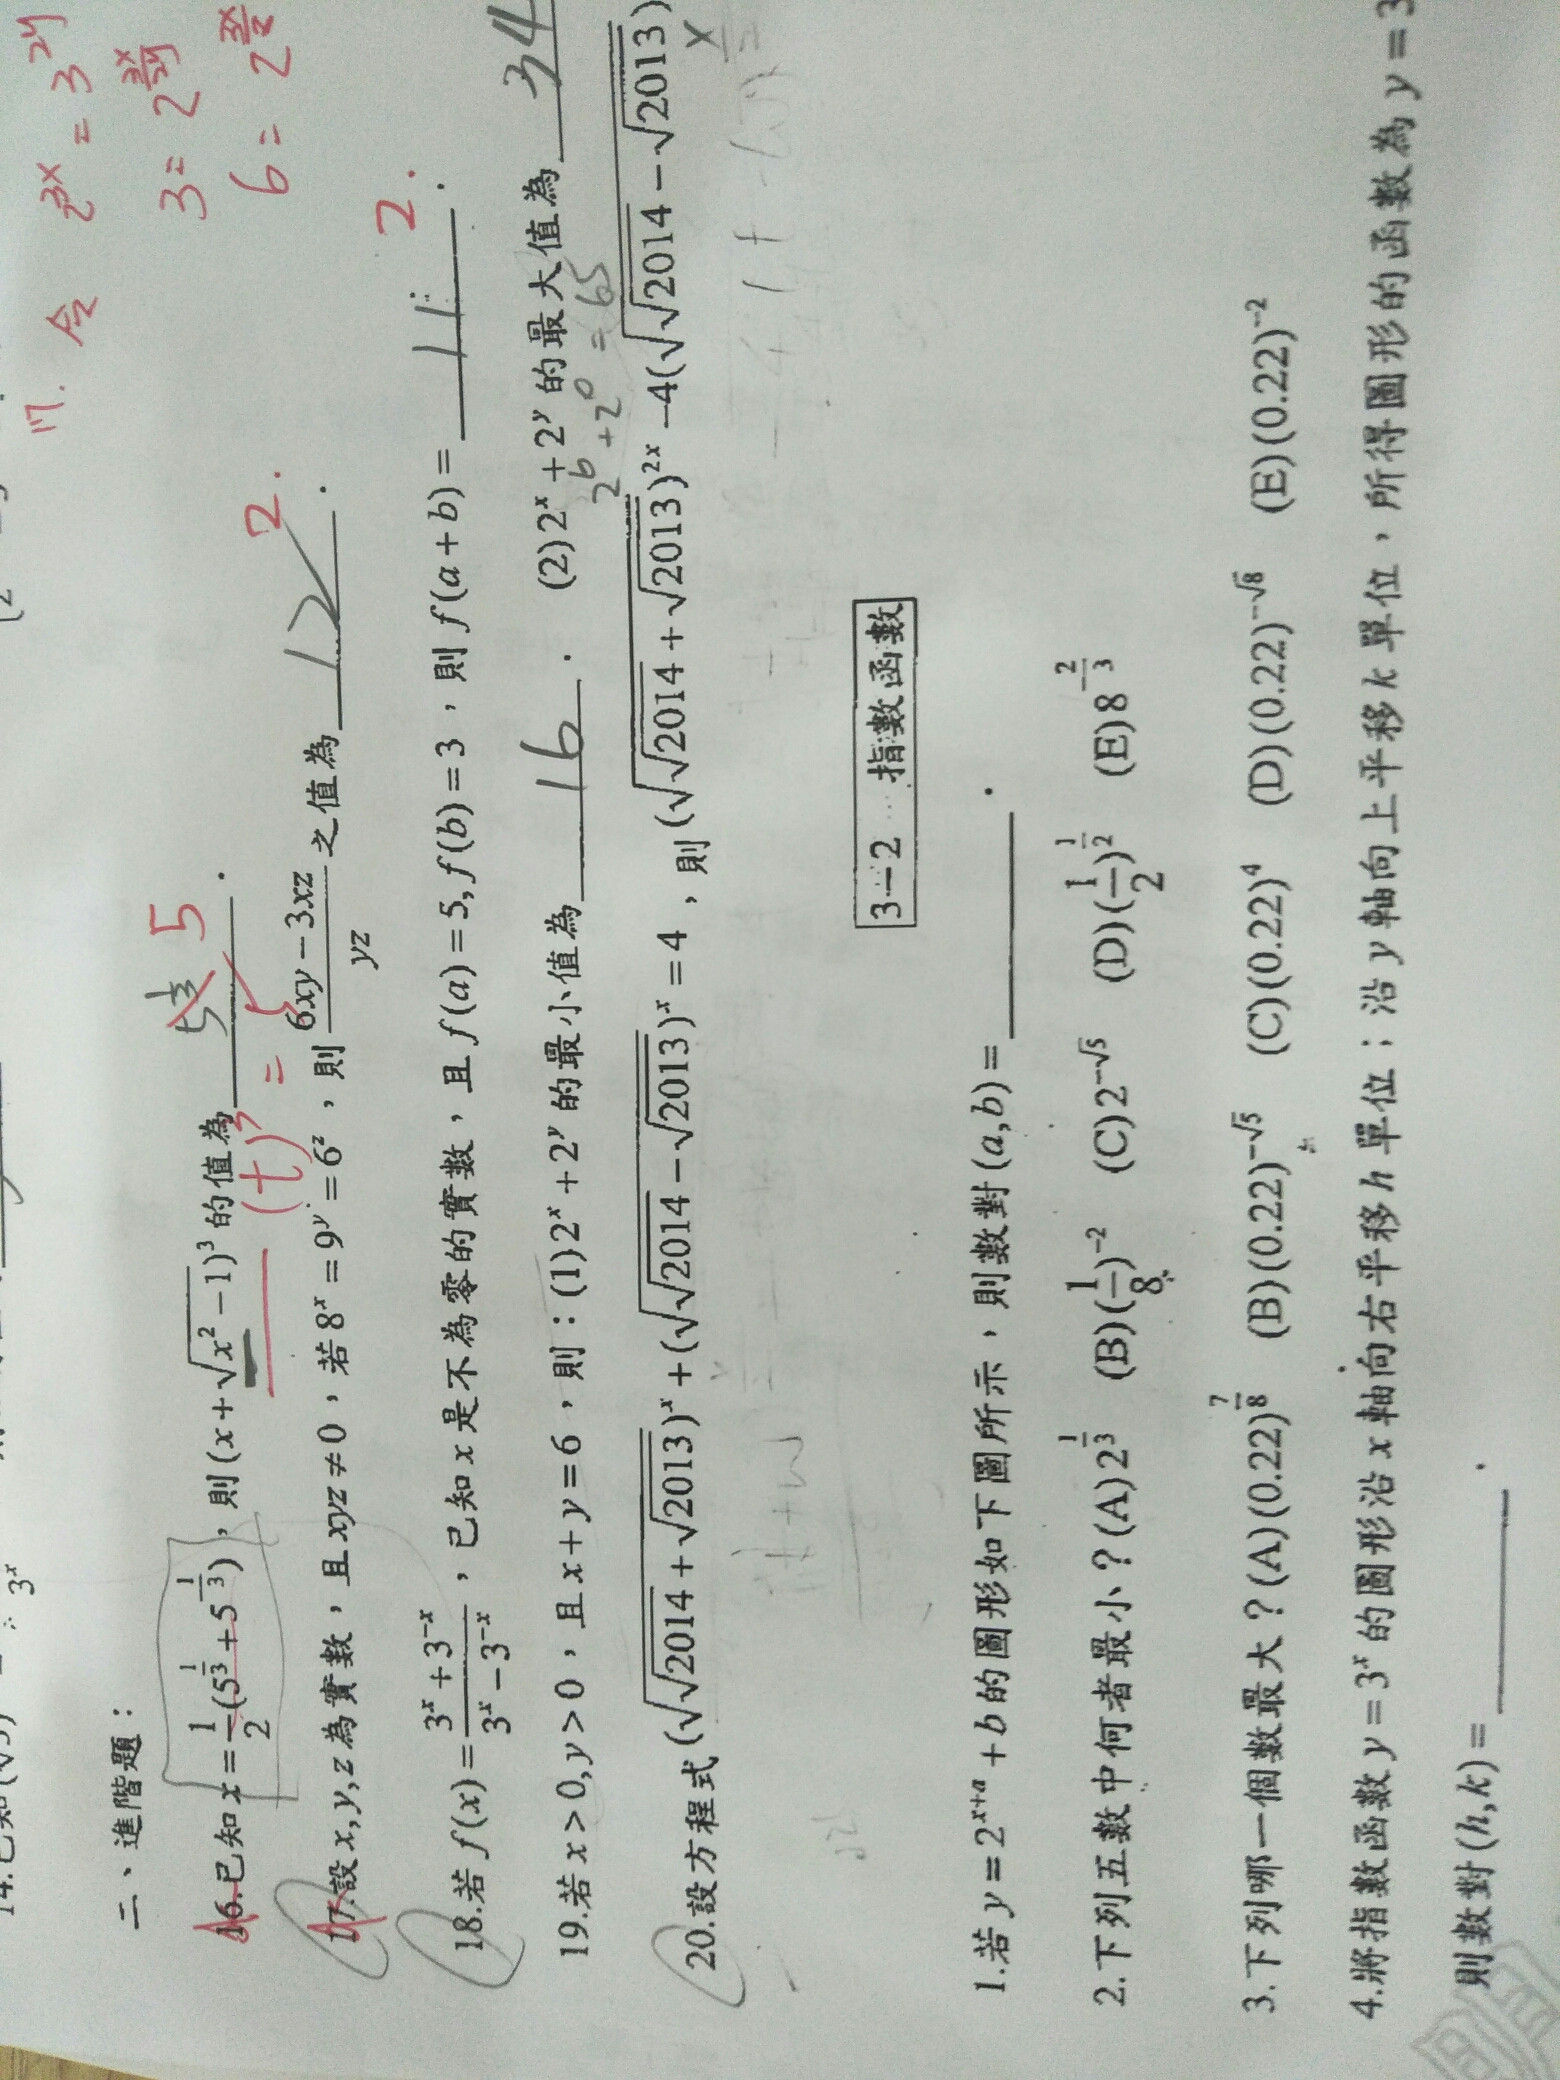 17. 令 2^{3x} = 3^{2y}
3 = 2^{\frac{3x}{2y}}
6 = 2^{\frac{3x}{z}}
二、進階題：
16.已知 x = \frac{1}{2}(5^{\frac{1}{3}} + 5^{-\frac{1}{3}})，則(x + \sqrt{x^2 - 1})^3 的值為 5^{\frac{1}{3}} 5 .
(t)^3 = 5
17.設 x, y, z 為實數，且 xyz ≠ 0，若 8^x = 9^y = 6^z，則 \frac{6xy - 3xz}{yz} 之值為 12 2 .
18.若 f(x) = \frac{3^x + 3^{-x}}{3^x - 3^{-x}}，已知 x 是不為零的實數，且 f(a) = 5, f(b) = 3，則 f(a + b) = 2 .
19.若 x > 0, y > 0，且 x + y = 6，則：(1) 2^x + 2^y 的最小值為 16 . (2) 2^x + 2^y 的最大值為 34
2^6 + 2^0 = 65
20.設方程式 (\sqrt{\sqrt{2014} + \sqrt{2013}})^x + (\sqrt{\sqrt{2014} - \sqrt{2013}})^x = 4，則 (\sqrt{\sqrt{2014} + \sqrt{2013}})^{2x} - 4(\sqrt{\sqrt{2014} - \sqrt{2013}})
3－2 指數函數
1.若 y = 2^{x+a} + b 的圖形如下圖所示，則數對 (a, b) = ______ .
2.下列五數中何者最小？(A) 2^{\frac{1}{3}} (B) (\frac{1}{8})^{-2} (C) 2^{-\sqrt{5}} (D) (\frac{1}{2})^{\frac{1}{2}} (E) 8^{-\frac{2}{3}}
3.下列哪一個數最大？(A) (0.22)^{\frac{7}{8}} (B) (0.22)^{-\sqrt{5}} (C) (0.22)^4 (D) (0.22)^{-\sqrt{8}} (E) (0.22)^{-2}
4.將指數函數 y = 3^x 的圖形沿 x 軸向右平移 h 單位；沿 y 軸向上平移 k 單位，所得圖形的函數為 y = 3
則數對 (h, k) = ______ .